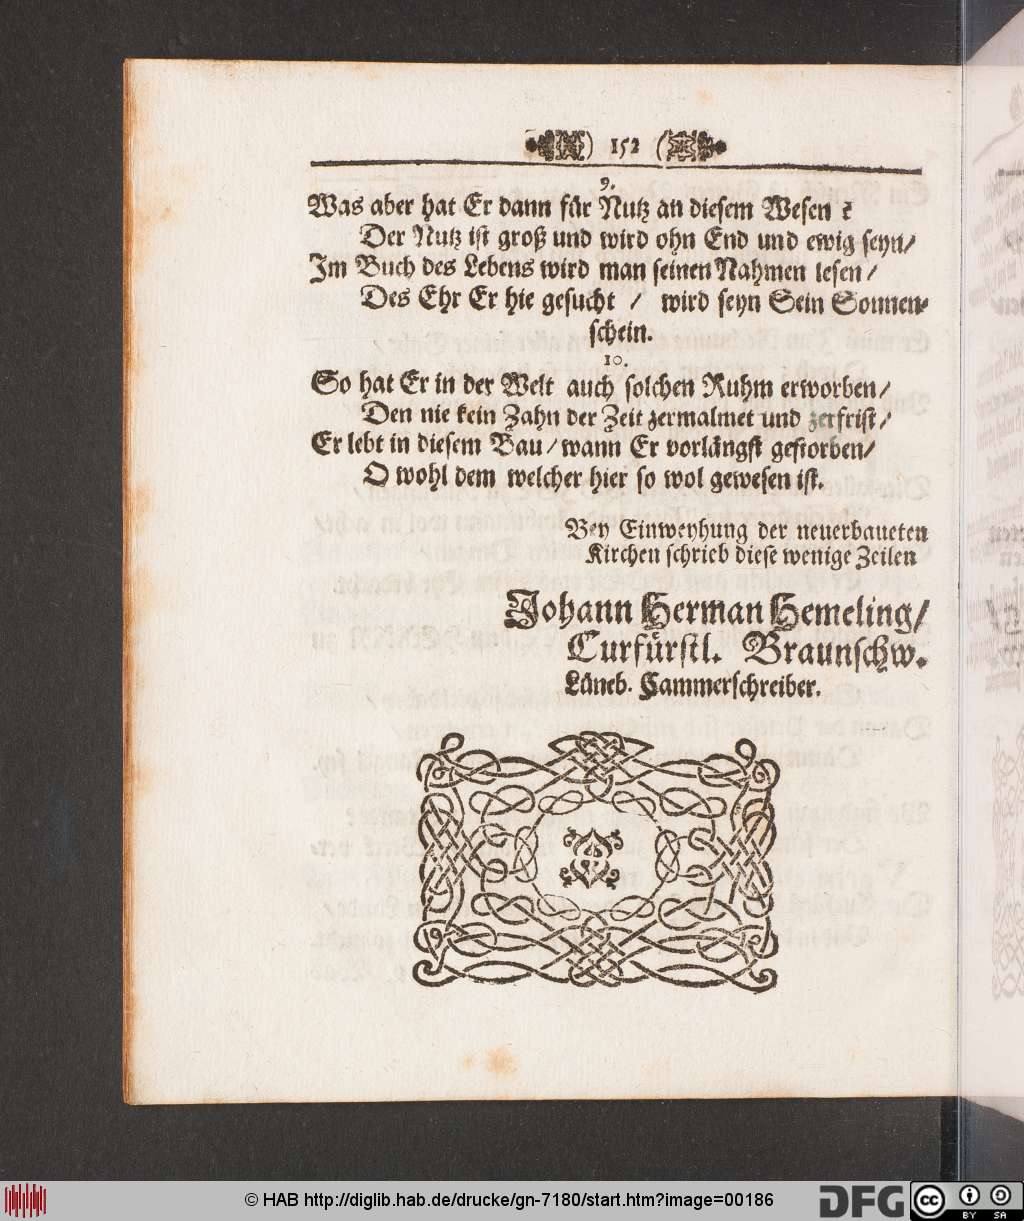 152
9.
Was aber hat Er dann für Nutz an diesem Wesen ?
Der Nutz ist groß und wird ohn End und ewig seyn/
Im Buch des Lebens wird man seinen Nahmen lesen /
Des Ehr Er hie gesucht / wird seyn Sein Sonnen-
schein.
10.
So hat Er in der Welt auch solchen Ruhm erworben/
Den nie kein Zahn der Zeit zermalmet und zerfrist/
Er lebt in diesem Bau / wann Er vorlängst gestorben/
O wohl dem welcher hier so wol gewesen ist.
Bey Einweyhung der neuerbaueten
Kirchen schrieb diese wenige Zeilen
Johann Herman Hemeling/
Curfürstl. Braunschw.
Lüneb. Cammerschreiber.
© HAB http://diglib.hab.de/drucke/gn-7180/start.htm?image=00186
DFG
cc BY SA